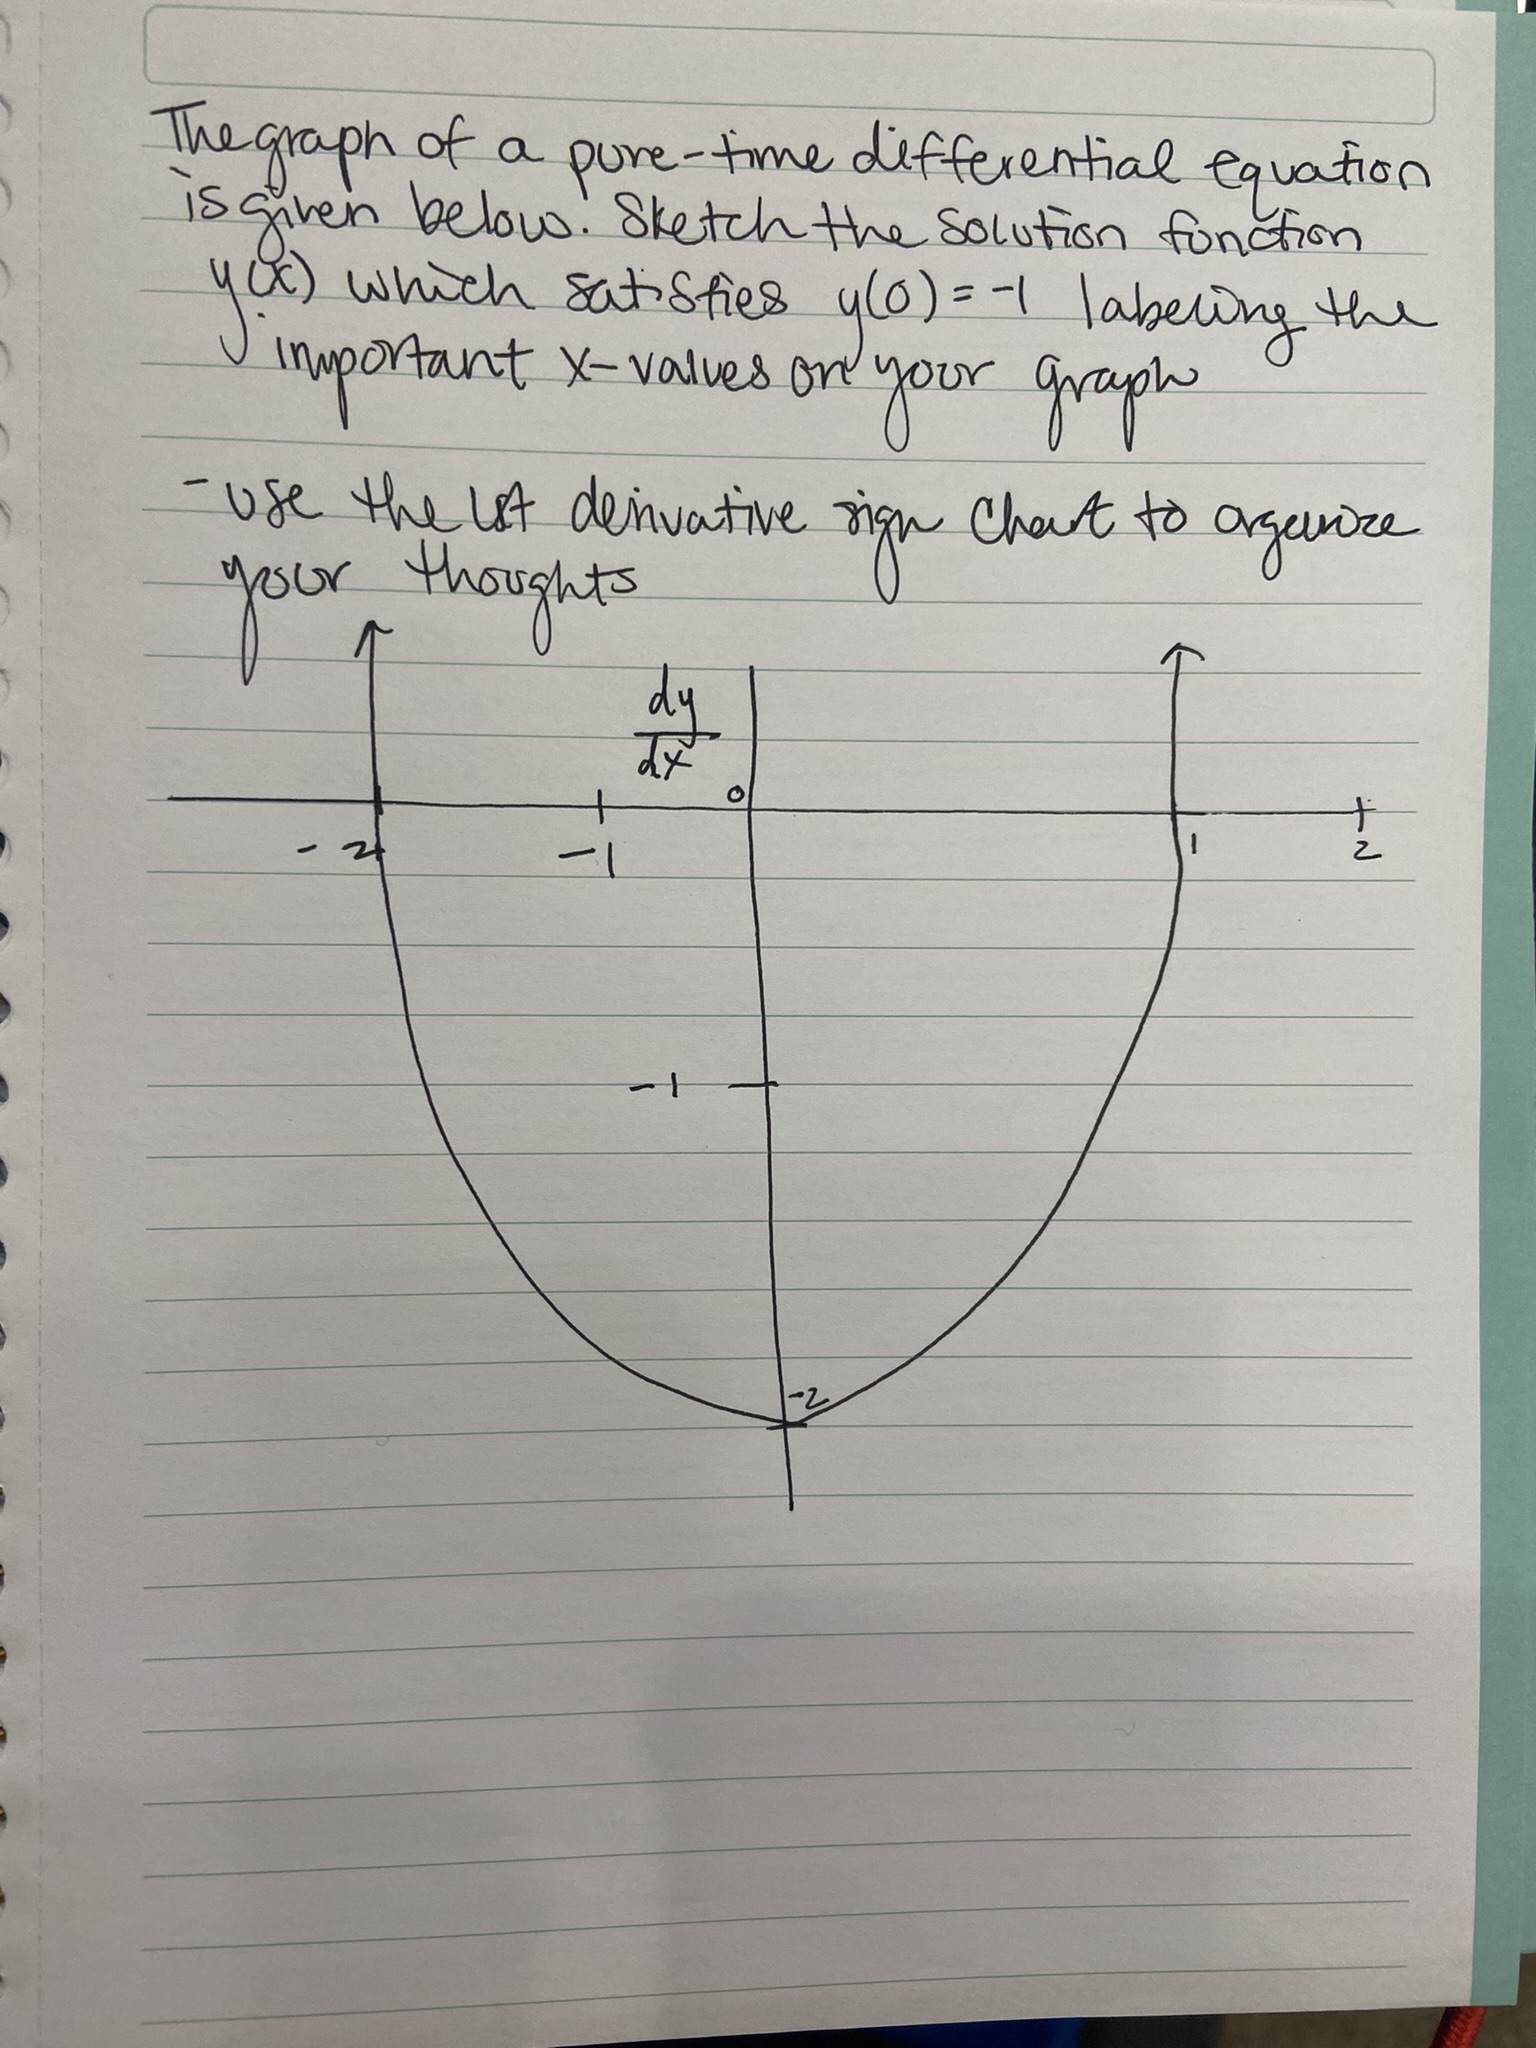 The graph of a pure-time differential equation
is given below. Sketch the solution function
y(x) which satisfies y(0) = -1 labeling the
important x-values on your graph
- use the 1st derivative sign chart to organize
your thoughts
dy
dx
0
-2 -1 1 2
-1
-2